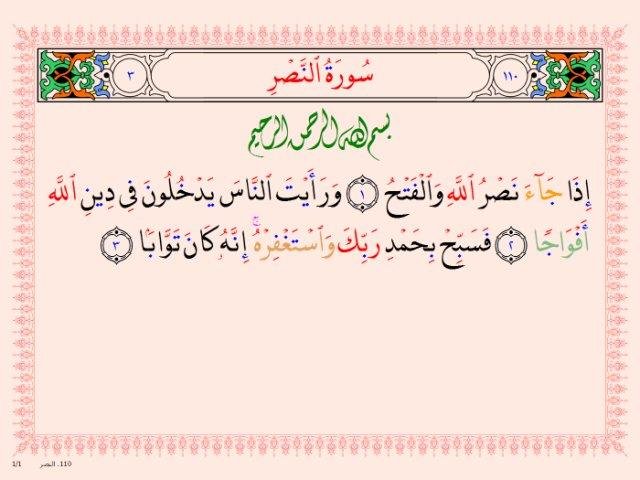 ١١٠ سُورَةُ ٱلنَّصْرِ ٣
بسم الله الرحمن الرحيم
إِذَا جَآءَ نَصْرُ ٱللَّهِ وَٱلْفَتْحُ ١ وَرَأَيْتَ ٱلنَّاسَ يَدْخُلُونَ فِى دِينِ ٱللَّهِ
أَفْوَاجًا ٢ فَسَبِّحْ بِحَمْدِ رَبِّكَ وَٱسْتَغْفِرْهُ ۚ إِنَّهُۥ كَانَ تَوَّابًۢا ٣
110. النصر 1/1